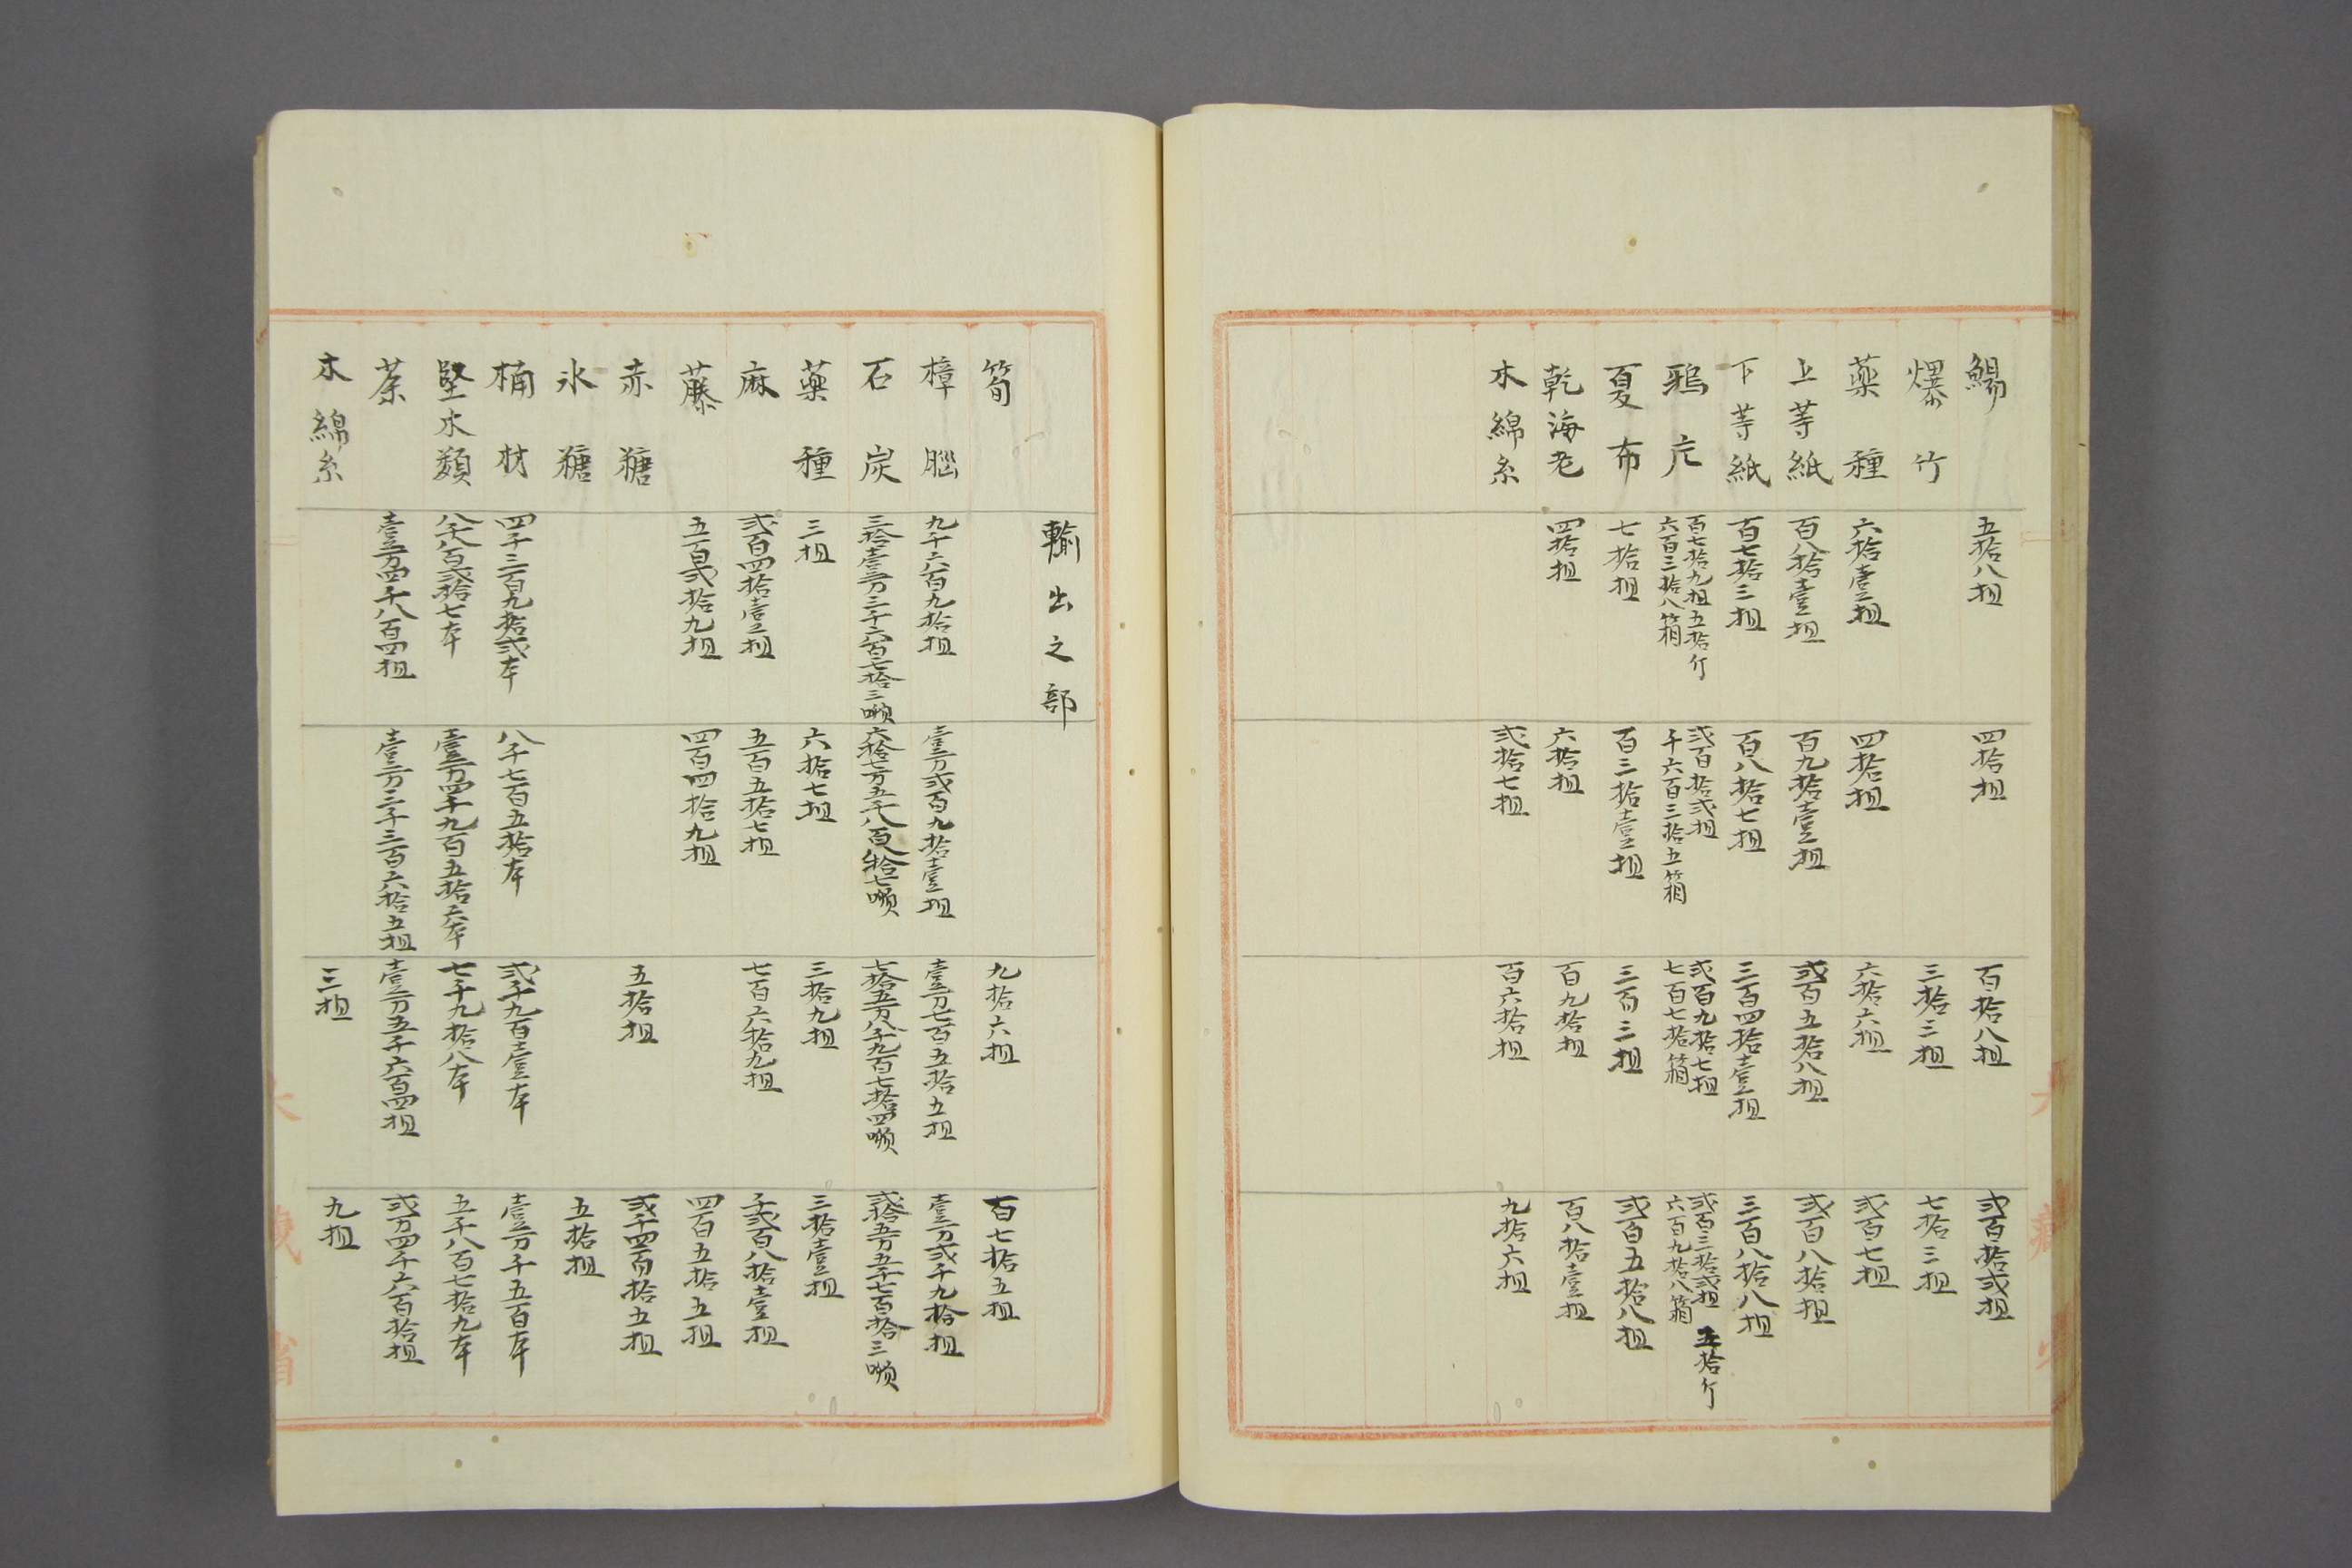 鯣 五拾八担 四拾担 百拾八担 弐百拾弐担
爆竹 三拾三担 七拾三担
薬種 六拾壹担 四拾担 六拾六担 弐百七担
上等紙 百八拾壹担 百九拾壹担 弐百五拾八担 弐百八拾担
下等紙 百七拾三担 百八拾七担 三百四拾壹担 三百八拾八担
鴉片 百七拾九担五拾斤 六百三拾八箱 弐百拾弐担 千六百三拾五箱 弐百九拾七担 七百七拾箱 弐百三拾弐担五拾斤 六百九拾八箱
夏布 七拾担 百三拾壹担 三百三担 弐百五拾八担
乾海老 四拾担 六拾担 百九拾担 百八拾壹担
木綿糸 弐拾七担 百六拾担 九拾六担
輸出之部
筍 九拾六担 百七拾五担
樟脳 九千六百九拾担 壹万弐百九拾壹担 壹万七百五拾五担 壹万弐千九拾担
石炭 三拾壹万三千六百七拾三噸 六拾七万五千八百八拾七噸 七拾五万八千九百七拾四噸 弐拾五万五千七百拾三噸
薬種 三担 六拾七担 三拾九担 三拾壹担
麻 弐百四拾壹担 五百五拾七担 七百六拾九担 千弐百八拾壹担
藤 五百弐拾九担 四百四拾九担 四百五拾五担
赤糖 五拾担 弐千四百拾五担
氷糖 五拾担
桶材 四千三百九拾弐本 八千七百五拾本 弐千九百壹本 壹万千五百本
堅木類 八千八百弐拾七本 壹万四千九百五拾六本 七千九拾八本 五千八百七拾九本
茶 壹万四千八百四担 壹万三千三百六拾五担 壹万五千六百四担 弐万四千六百拾担
木綿糸 三担 九担